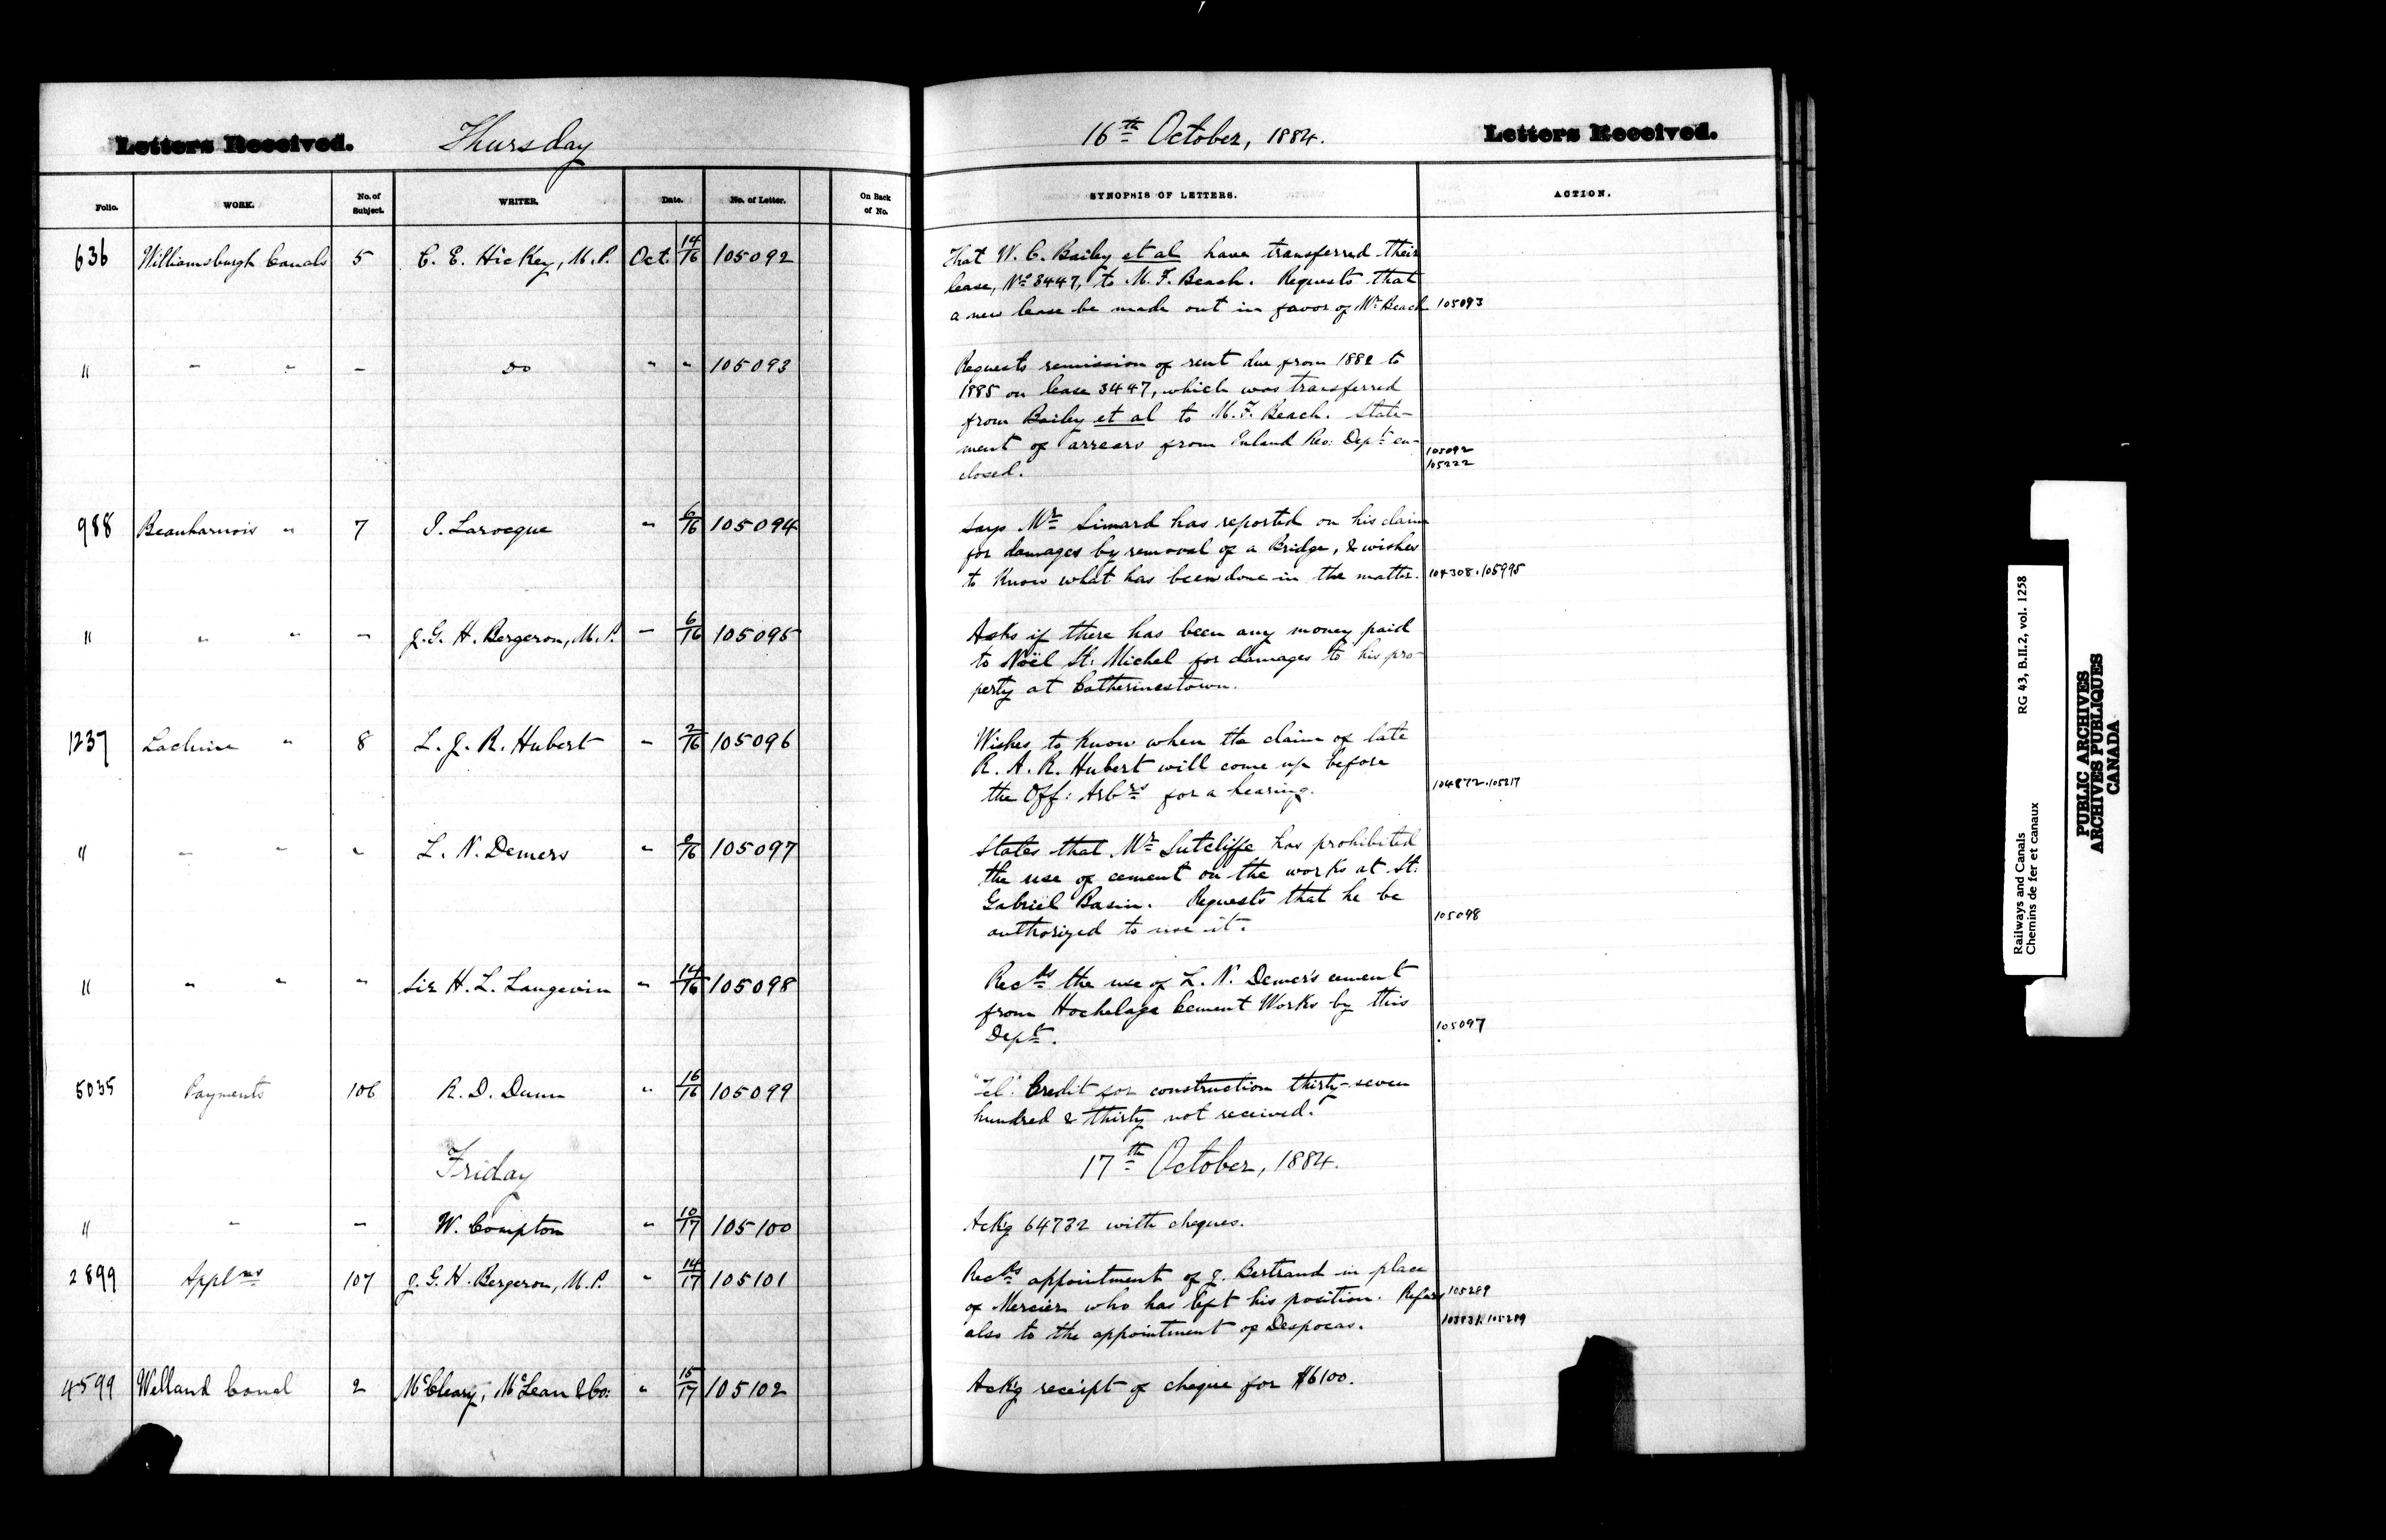 Letters Received. Thursday 16th October, 1884. Letters Received.
Folio. WORK. No. of Subject. WRITER. Date. No. of Letter. On Back of No. SYNOPSIS OF LETTERS. ACTION.
636 Williamsburgh Canals 5 C. E. Hickey, M.P. Oct. 14/16 105092 That W. C. Bailey et al have transferred their
lease, No 3447, to M. F. Beach. Requests that
a new lease be made out in favor of Mr Beach 105093
" " " " Do " " 105093 Requests remission of rent due from 1882 to
1885 on lease 3447, which was transferred
from Bailey et al to M. F. Beach. State-
ment of arrears from Inland Rev: Dept en- 105092
closed. 105222
988 Beauharnois " 7 I. Larocque " 6/16 105094 Says Mr Simard has reported on his claim
for damages by removal of a Bridge, & wishes
to know what has been done in the matter. 104308. 105995
" " " " J. G. H. Bergeron, M.P. " 6/16 105095 Asks if there has been any money paid
to Noël St. Michel for damages to his pro-
perty at Catherinestown.
1237 Lachine " 8 L. J. R. Hubert " 2/16 105096 Wishes to know when the claim of late
R. A. R. Hubert will come up before
the Off: Arbrs for a hearing. 104872. 105217
" " " " L. N. Demers " /16 105097 States that Mr Sutcliffe has prohibited
the use of cement on the works at St.
Gabriel Basin. Requests that he be
authorized to use it. 105098
" " " " Sir H. L. Langevin " 14/16 105098 Recds the use of L. N. Demer's cement
from Hochelaga Cement Works by this
Dept. 105097
5035 Payments 106 R. D. Dunn " 16/16 105099 "Tel". Credit for construction thirty-seven
hundred & thirty not received."
Friday 17th October, 1884.
" " " W. Compton " 10/17 105100 Ackg 64732 with cheques.
2899 Applns 107 J. G. H. Bergeron, M.P. " 14/17 105101 Recds appointment of J. Bertrand in place
of Mercier who has left his position. Refers 105289
also to the appointment of Despocas.
4599 Welland Canal 2 McCleary, McLean & Co: " 15/17 105102 Ackg receipt of cheque for $6100.
Railways and Canals RG 43, B.II.2, vol. 1258
Chemins de fer et canaux
PUBLIC ARCHIVES
ARCHIVES PUBLIQUES
CANADA